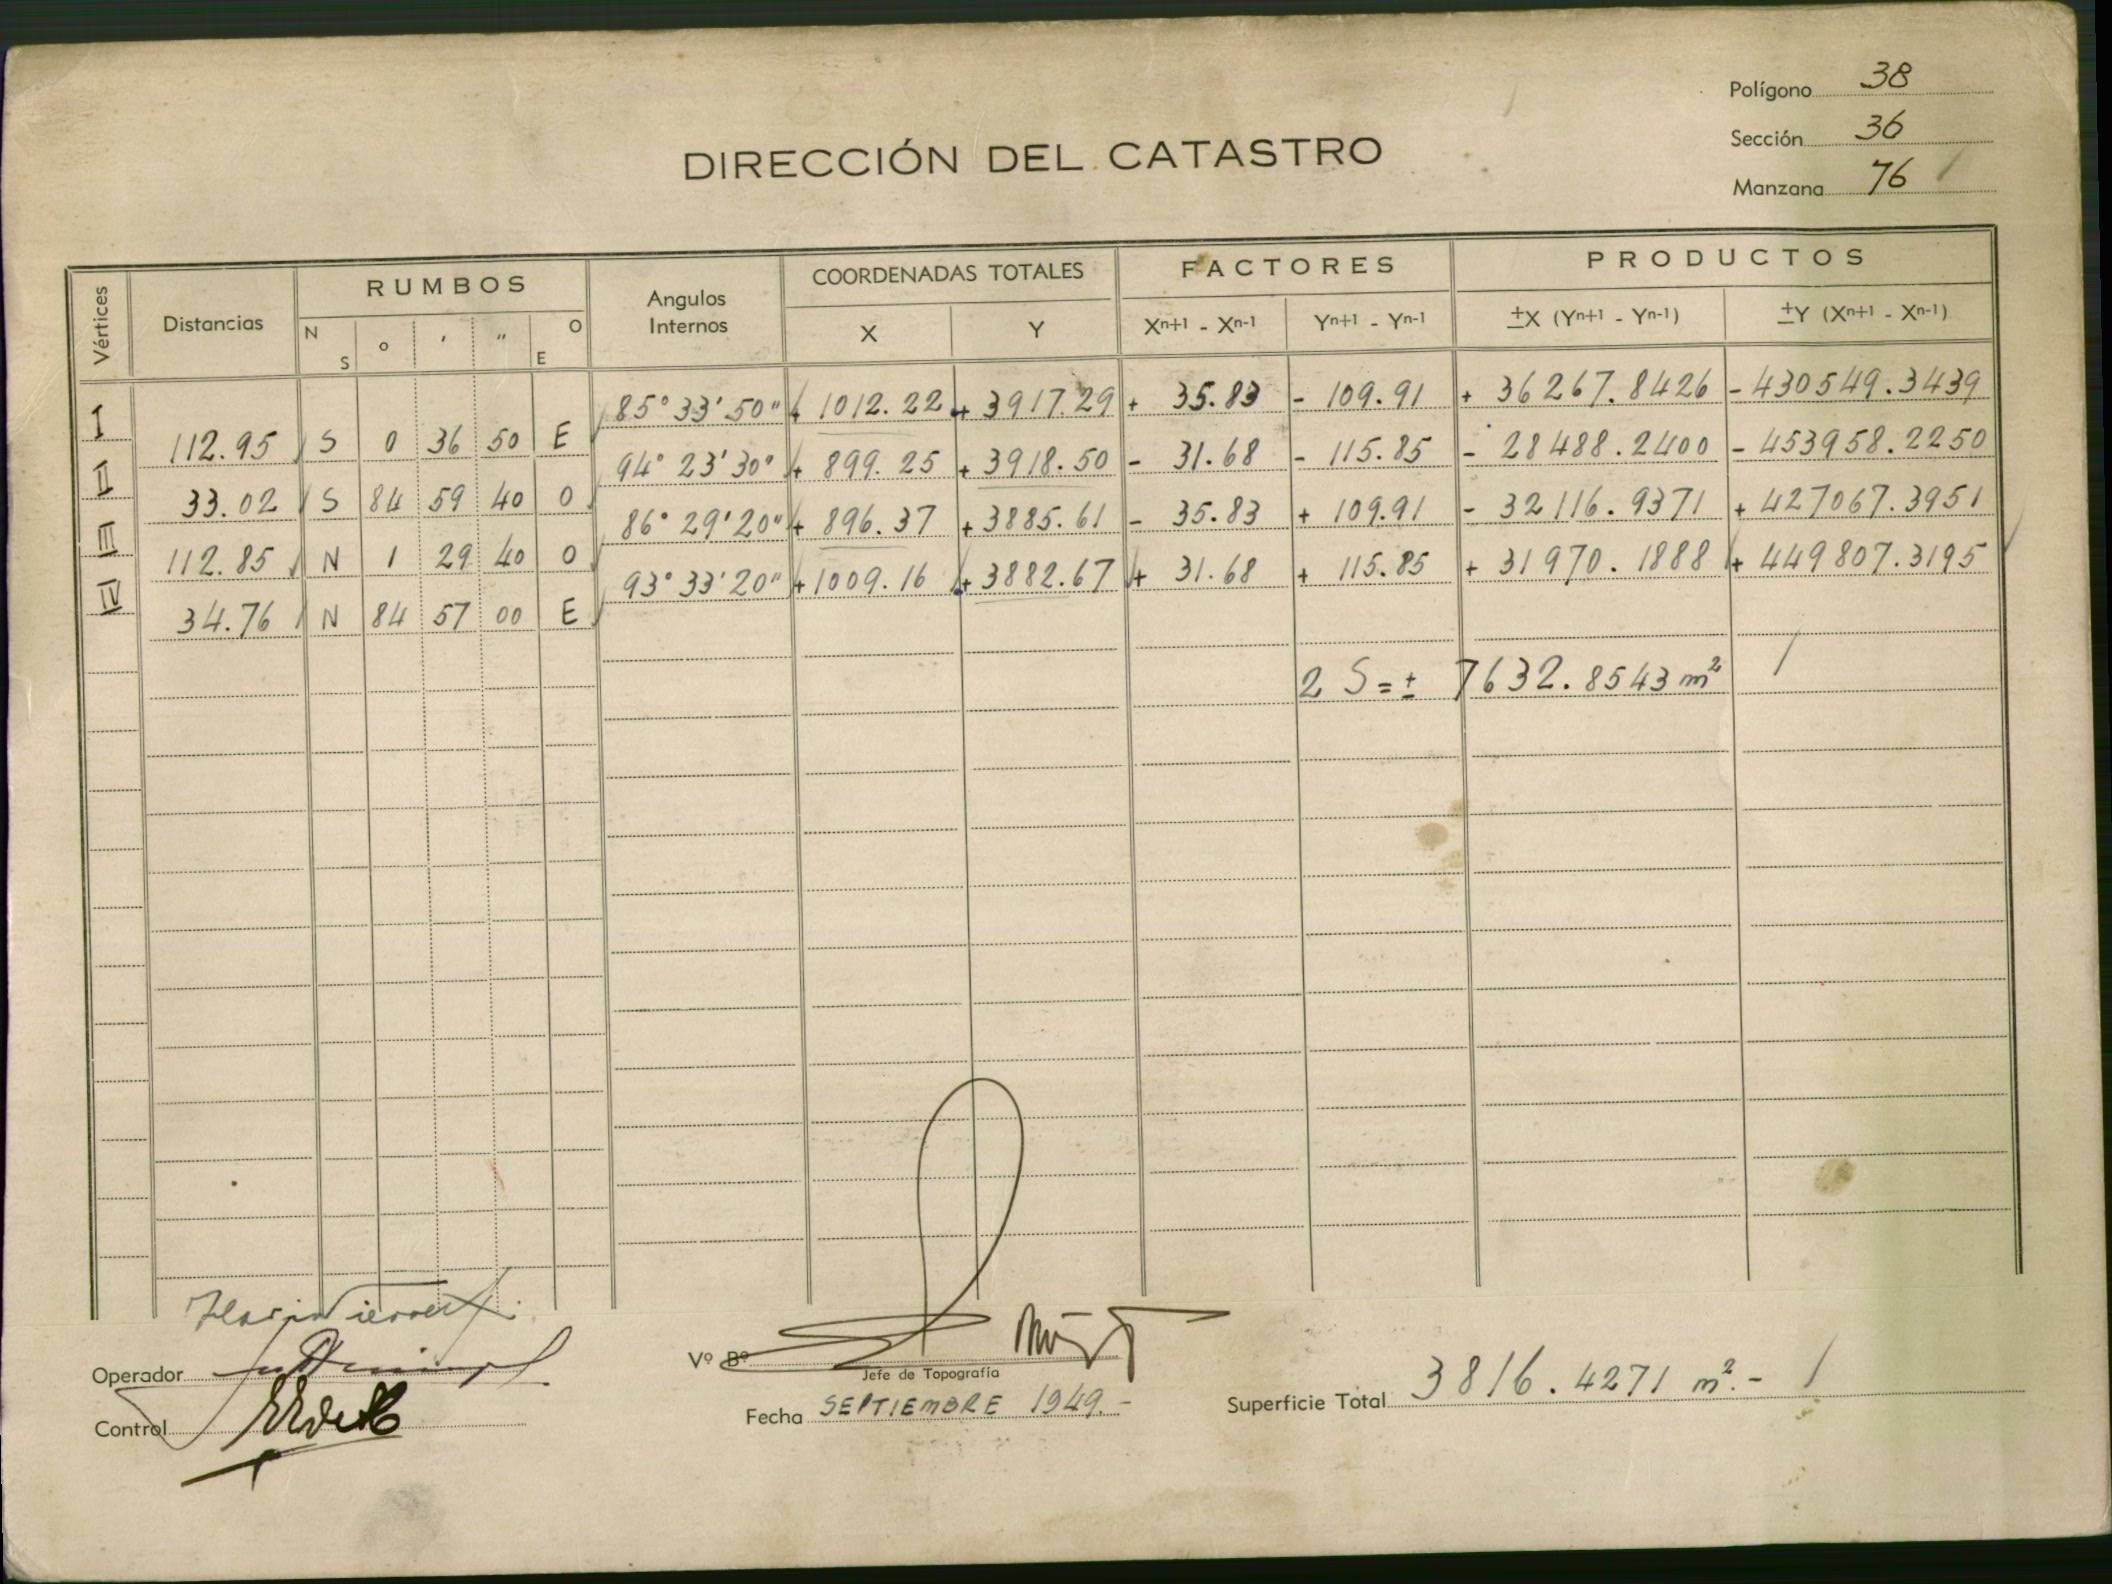 Polígono 38
Sección 36
Manzana 76
DIRECCIÓN DEL CATASTRO
Vértices Distancias RUMBOS Angulos Internos COORDENADAS TOTALES FACTORES PRODUCTOS
N S o ' " O E X Y Xn+1 - Xn-1 Yn+1 - Yn-1 ±X (Yn+1 - Yn-1) ±Y (Xn+1 - Xn-1)
I 85° 33' 50" + 1012.22 + 3917.29 + 35.83 - 109.91 + 36267.8426 - 430549.3439
112.95 S 0 36 50 E
II 94° 23' 30" + 899.25 + 3918.50 - 31.68 - 115.85 - 28488.2400 - 453958.2250
33.02 S 84 59 40 O
III 86° 29' 20" + 896.37 + 3885.61 - 35.83 + 109.91 - 32116.9371 + 427067.3951
112.85 N 1 29 40 O
IV 93° 33' 20" + 1009.16 + 3882.67 + 31.68 + 115.85 + 31970.1888 + 449807.3195
34.76 N 84 57 00 E
2 S = ± 7632.8543 m²
Operador
Control
Vº Bº
Jefe de Topografía
Fecha SEPTIEMBRE 1949.-
Superficie Total 3816.4271 m².-